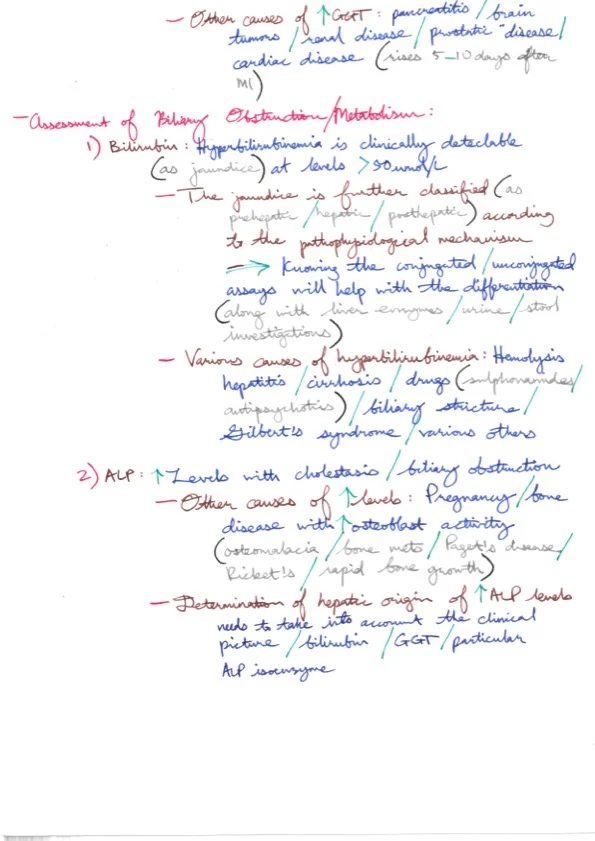 - Other causes of ↑GGT: pancreatitis / brain
tumors / renal disease / prostatic disease /
cardiac disease (rises 5-10 days after
MI)
- Assessment of Biliary Obstruction/Metabolism:
1) Bilirubin: Hyperbilirubinemia is clinically detectable
(as jaundice) at levels >50umol/L
- The jaundice is further classified (as
prehepatic / hepatic / posthepatic) according
to the pathophysiological mechanism
→ Knowing the conjugated / unconjugated
assays will help with the differentiation
(along with liver enzymes / urine / stool
investigations)
- Various causes of hyperbilirubinemia: Hemolysis
hepatitis / cirrhosis / drugs (sulphonamides /
antipsychotics) / biliary stricture /
Gilbert's syndrome / various others
2) ALP: ↑Levels with cholestasis / biliary obstruction
- Other causes of ↑levels: Pregnancy / bone
disease with ↑osteoblast activity
(osteomalacia / bone mets / Paget's disease /
Ricket's / rapid bone growth)
- Determination of hepatic origin of ↑ALP levels
needs to take into account the clinical
picture / bilirubin / GGT / particular
ALP isoenzyme